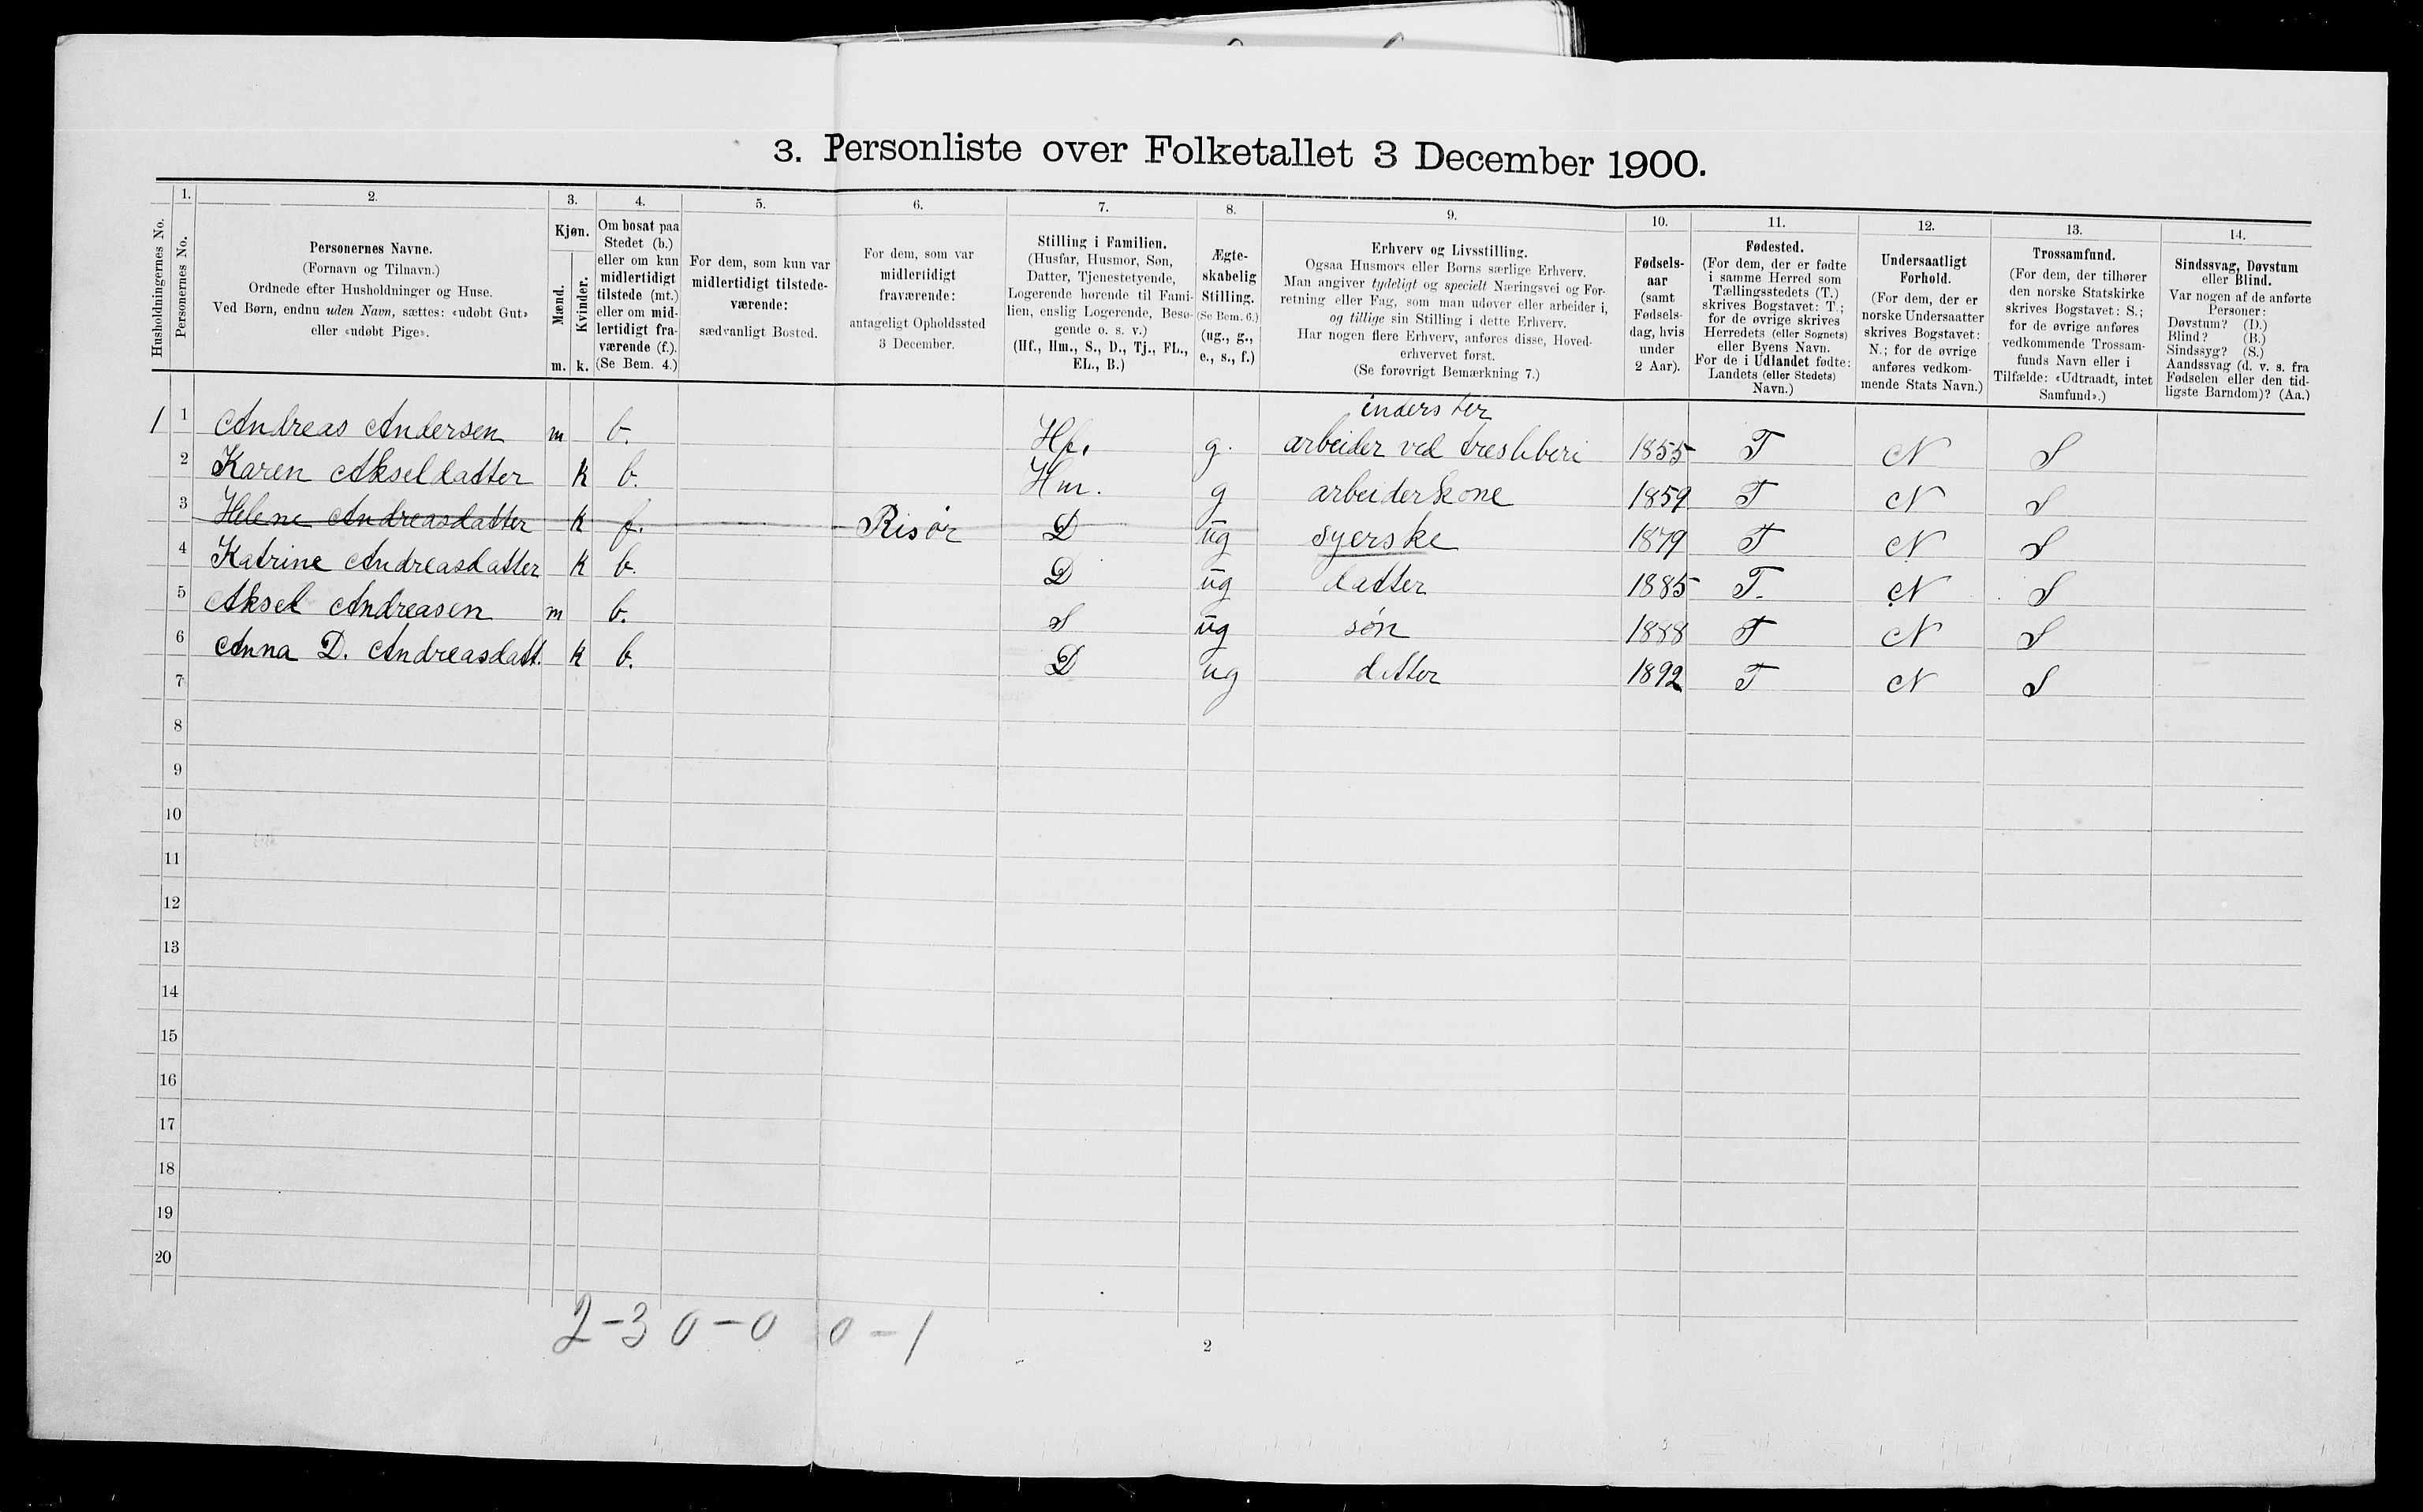 3. Personliste over Folketallet 3 December 1900.
1. 2. 3. 4. 5. 6. 7. 8. 9. 10. 11. 12. 13. 14.
Husholdningernes No.
Personernes No.
Personernes Navne.
(Fornavn og Tilnavn.)
Ordnede efter Husholdninger og Huse.
Ved Børn, endnu uden Navn, sættes: «udøbt Gut»
eller «udøbt Pige».
Kjøn.
Mænd.
Kvinder.
m. k.
Om bosat paa
Stedet (b.)
eller om kun
midlertidigt
tilstede (mt.)
eller om mid-
lertidigt fra-
værende (f.).
(Se Bem. 4.)
For dem, som kun var
midlertidigt tilstede-
værende:
sædvanligt Bosted.
For dem, som var
midlertidigt
fraværende:
antageligt Opholdssted
3 December.
Stilling i Familien.
(Husfar, Husmor, Søn,
Datter, Tjenestetyende,
Logerende hørende til Fami-
lien, enslig Logerende, Besø-
gende o. s. v.)
(Hf., Hm., S., D., Tj., FL.,
EL., B.)
Ægte-
skabelig
Stilling.
(Se Bem. 6.)
(ug., g.,
e., s., f.)
Erhverv og Livsstilling.
Ogsaa Husmors eller Børns særlige Erhverv.
Man angiver tydeligt og specielt Næringsvei og For-
retning eller Fag, som man udøver eller arbeider i,
og tillige sin Stilling i dette Erhverv.
Har nogen flere Erhverv, anføres disse, Hoved-
erhvervet først.
(Se forøvrigt Bemærkning 7.)
Fødsels-
aar
(samt
Fødsels-
dag, hvis
under
2 Aar).
Fødested.
(For dem, der er fødte
i samme Herred som
Tællingsstedets (T.)
skrives Bogstavet: T.;
for de øvrige skrives
Herredets (eller Sognets)
eller Byens Navn.
For de i Udlandet fødte:
Landets (eller Stedets)
Navn.)
Undersaatligt
Forhold.
(For dem, der er
norske Undersaatter
skrives Bogstavet:
N.; for de øvrige
anføres vedkom-
mende Stats Navn.)
Trossamfund.
(For dem, der tilhører
den norske Statskirke
skrives Bogstavet: S.;
for de øvrige anføres
vedkommende Trossam-
funds Navn eller i
Tilfælde: «Udtraadt, intet
Samfund».)
Sindssvag, Døvstum
eller Blind.
Var nogen af de anførte
Personer:
Døvstum? (D.)
Blind? (B.)
Sindssyg? (S.)
Aandssvag (d. v. s. fra
Fødselen eller den tid-
ligste Barndom)? (Aa.)
inderster
1 1 Andreas Andersen m b. Hf. g. arbeider ved 1855 T N S
2 Karen Akseldatter k b. Hm. g arbeiderkone 1859 T N S
3 Helene Andreasdatter k f. Risør D ug syerske 1879 T N S
4 Katrine Andreasdatter k b. D ug datter 1885 T. N S
5 Aksel Andreasen m b. S ug søn 1888 T N S
6 Anna D. Andreasdatt. k b. D ug datter 1892 T N S
7
8
9
10
11
12
13
14
15
16
17
18
19
20
2-3 0-0 0-1
2